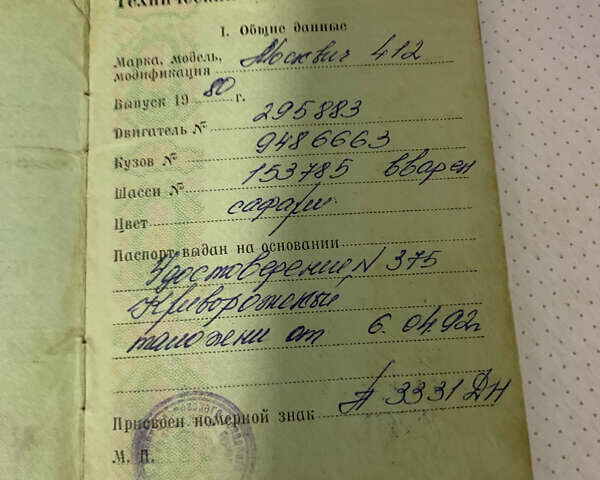 Технический
I. Общие данные
Марка, модель, модификация Москвич 412
Выпуск 19 80 г.
Двигатель № 295883
Кузов № 9486663
Шасси № 153785 вварен
Цвет сафари
Паспорт выдан на основании
Удостоверение N 375
Криворожской
таможени от 6.04.92г
Присвоен номерной знак 3331 ДН
М. П.